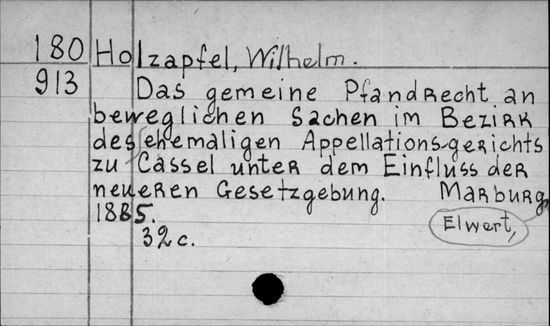 180 Holzapfel, Wilhelm.
913 Das gemeine Pfandrecht an
beweglichen Sachen im Bezirk
des ehemaligen Appellations-gerichts
zu Cassel unter dem Einfluss der
neueren Gesetzgebung. Marburg,
Elwert,
1885.
32 c.